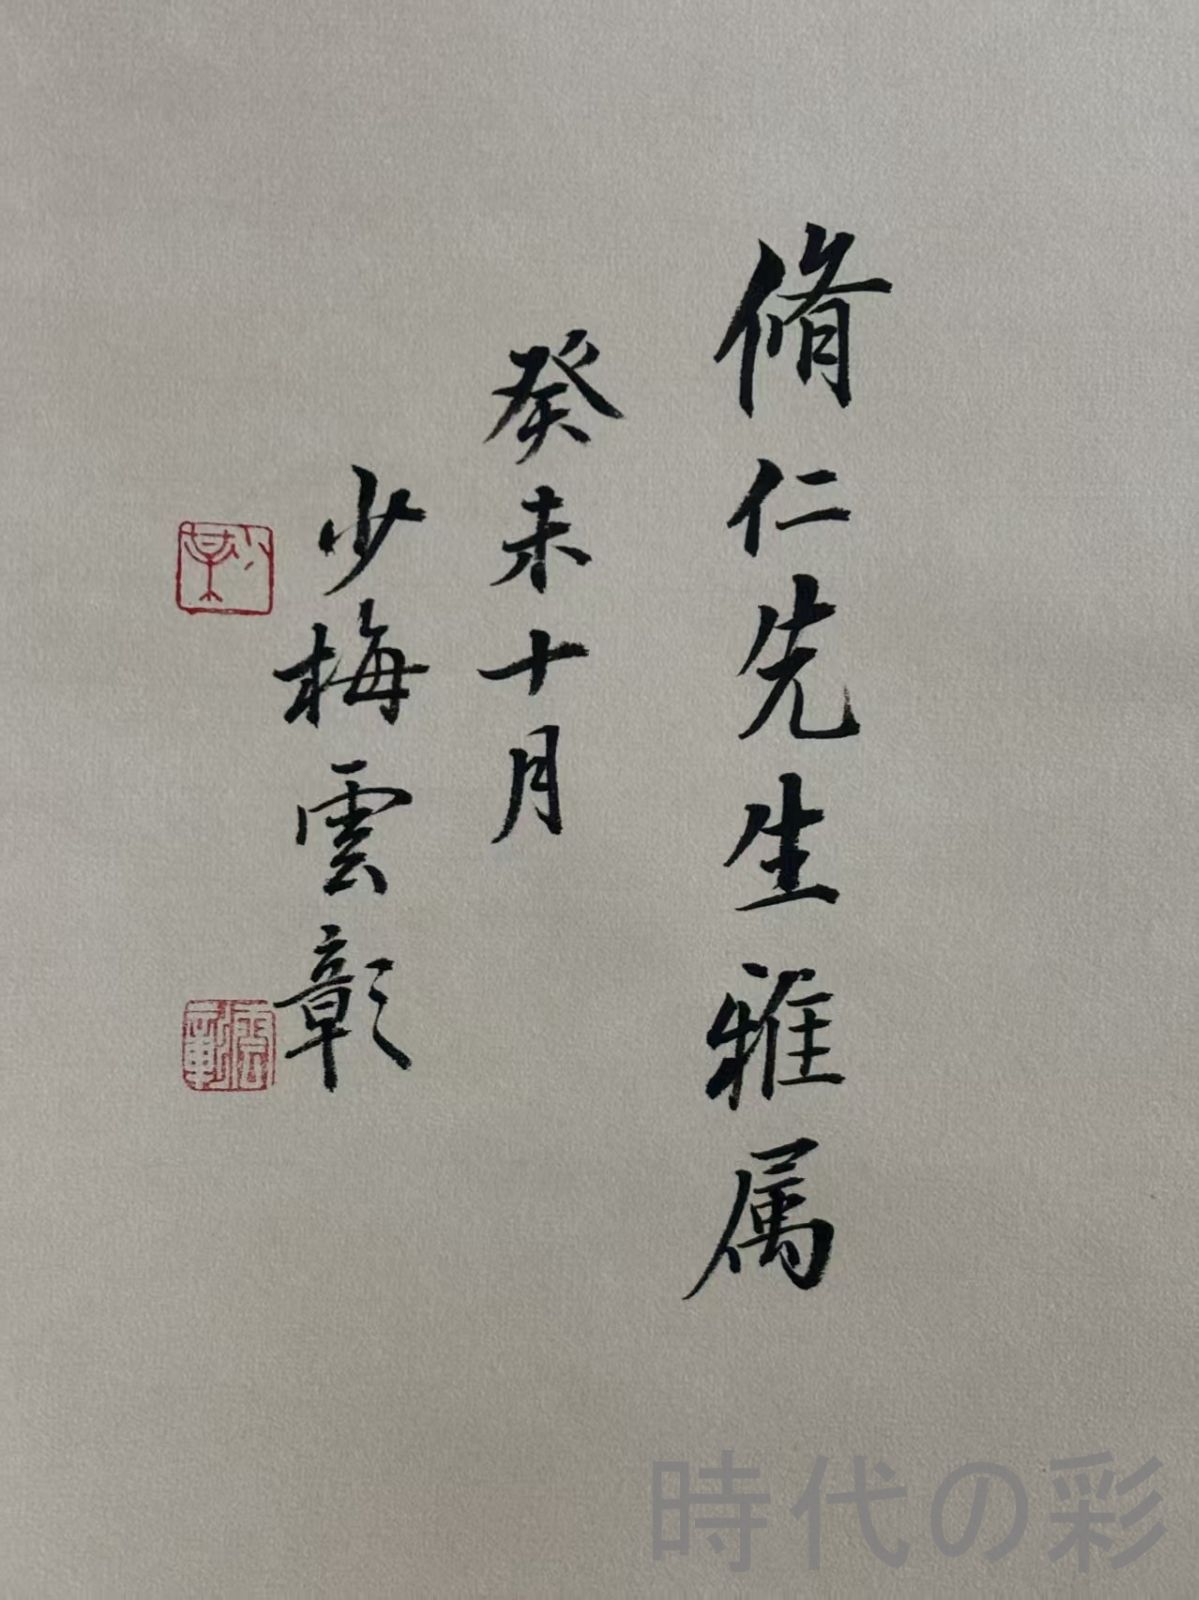 脩仁先生雅属
癸未十月
少梅雲彰
少某
雲彰
時代の彩